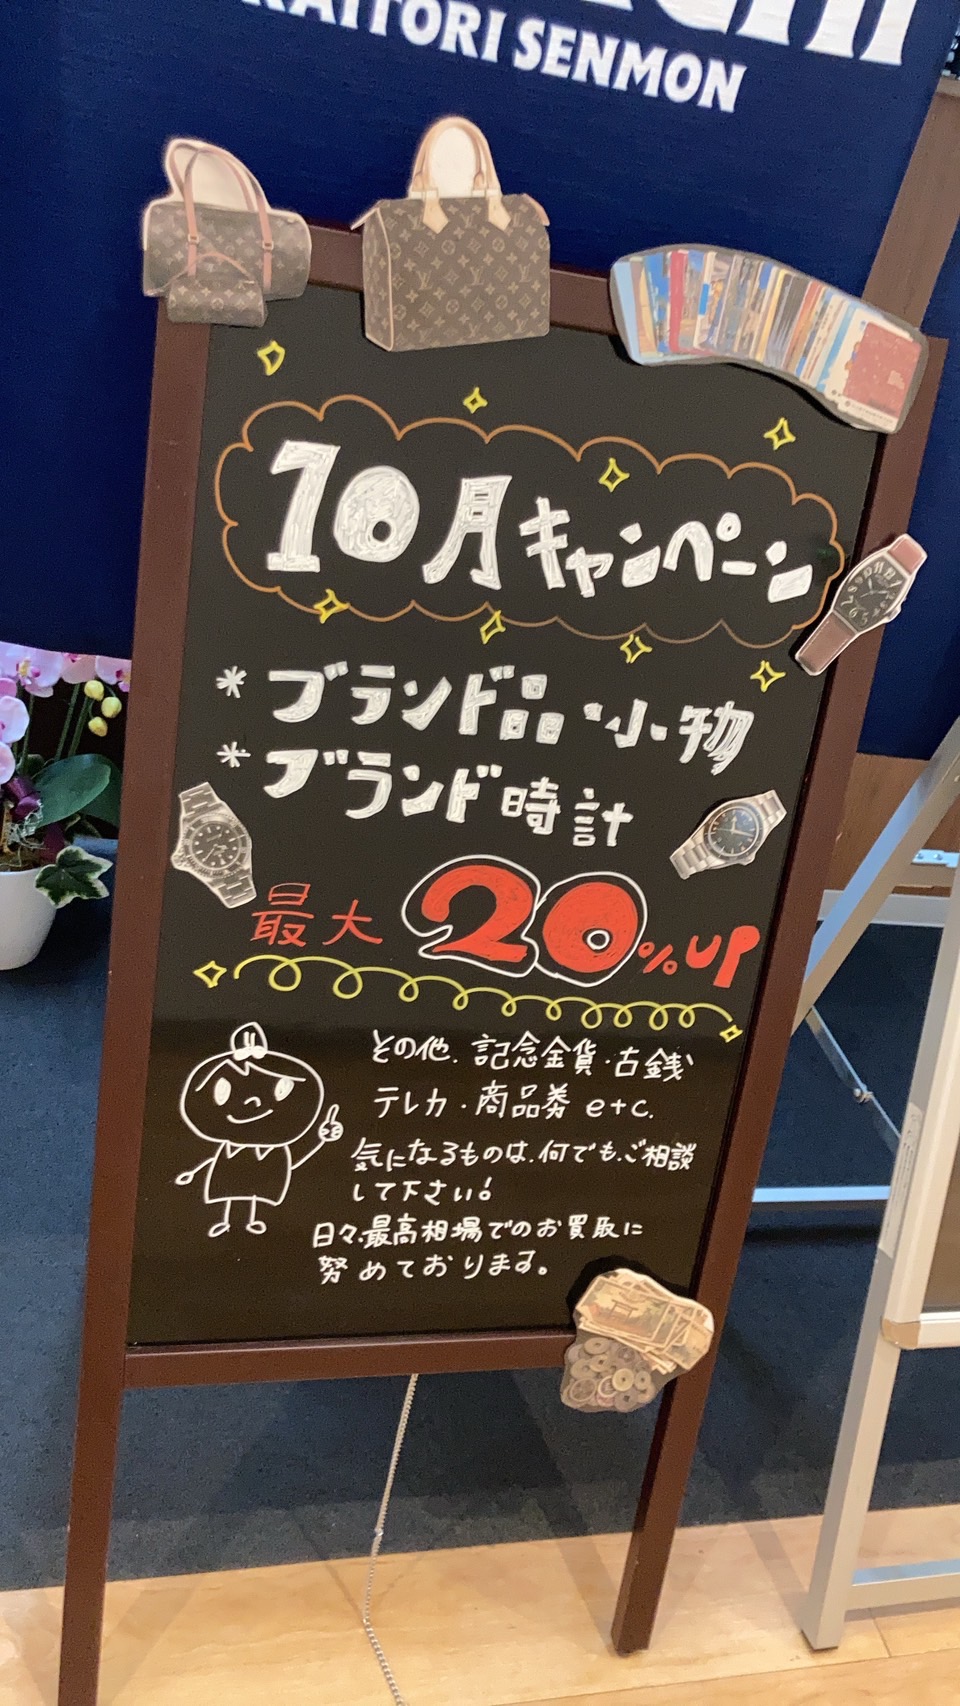 KAITORI SENMON
10月キャンペーン
* ブランド品・小物
* ブランド時計
最大20%UP
その他、記念金貨・古銭
テレカ・商品券 etc.
気になるものは、何でも、ご相談
して下さい!
日々、最高相場でのお買取に
努めております。